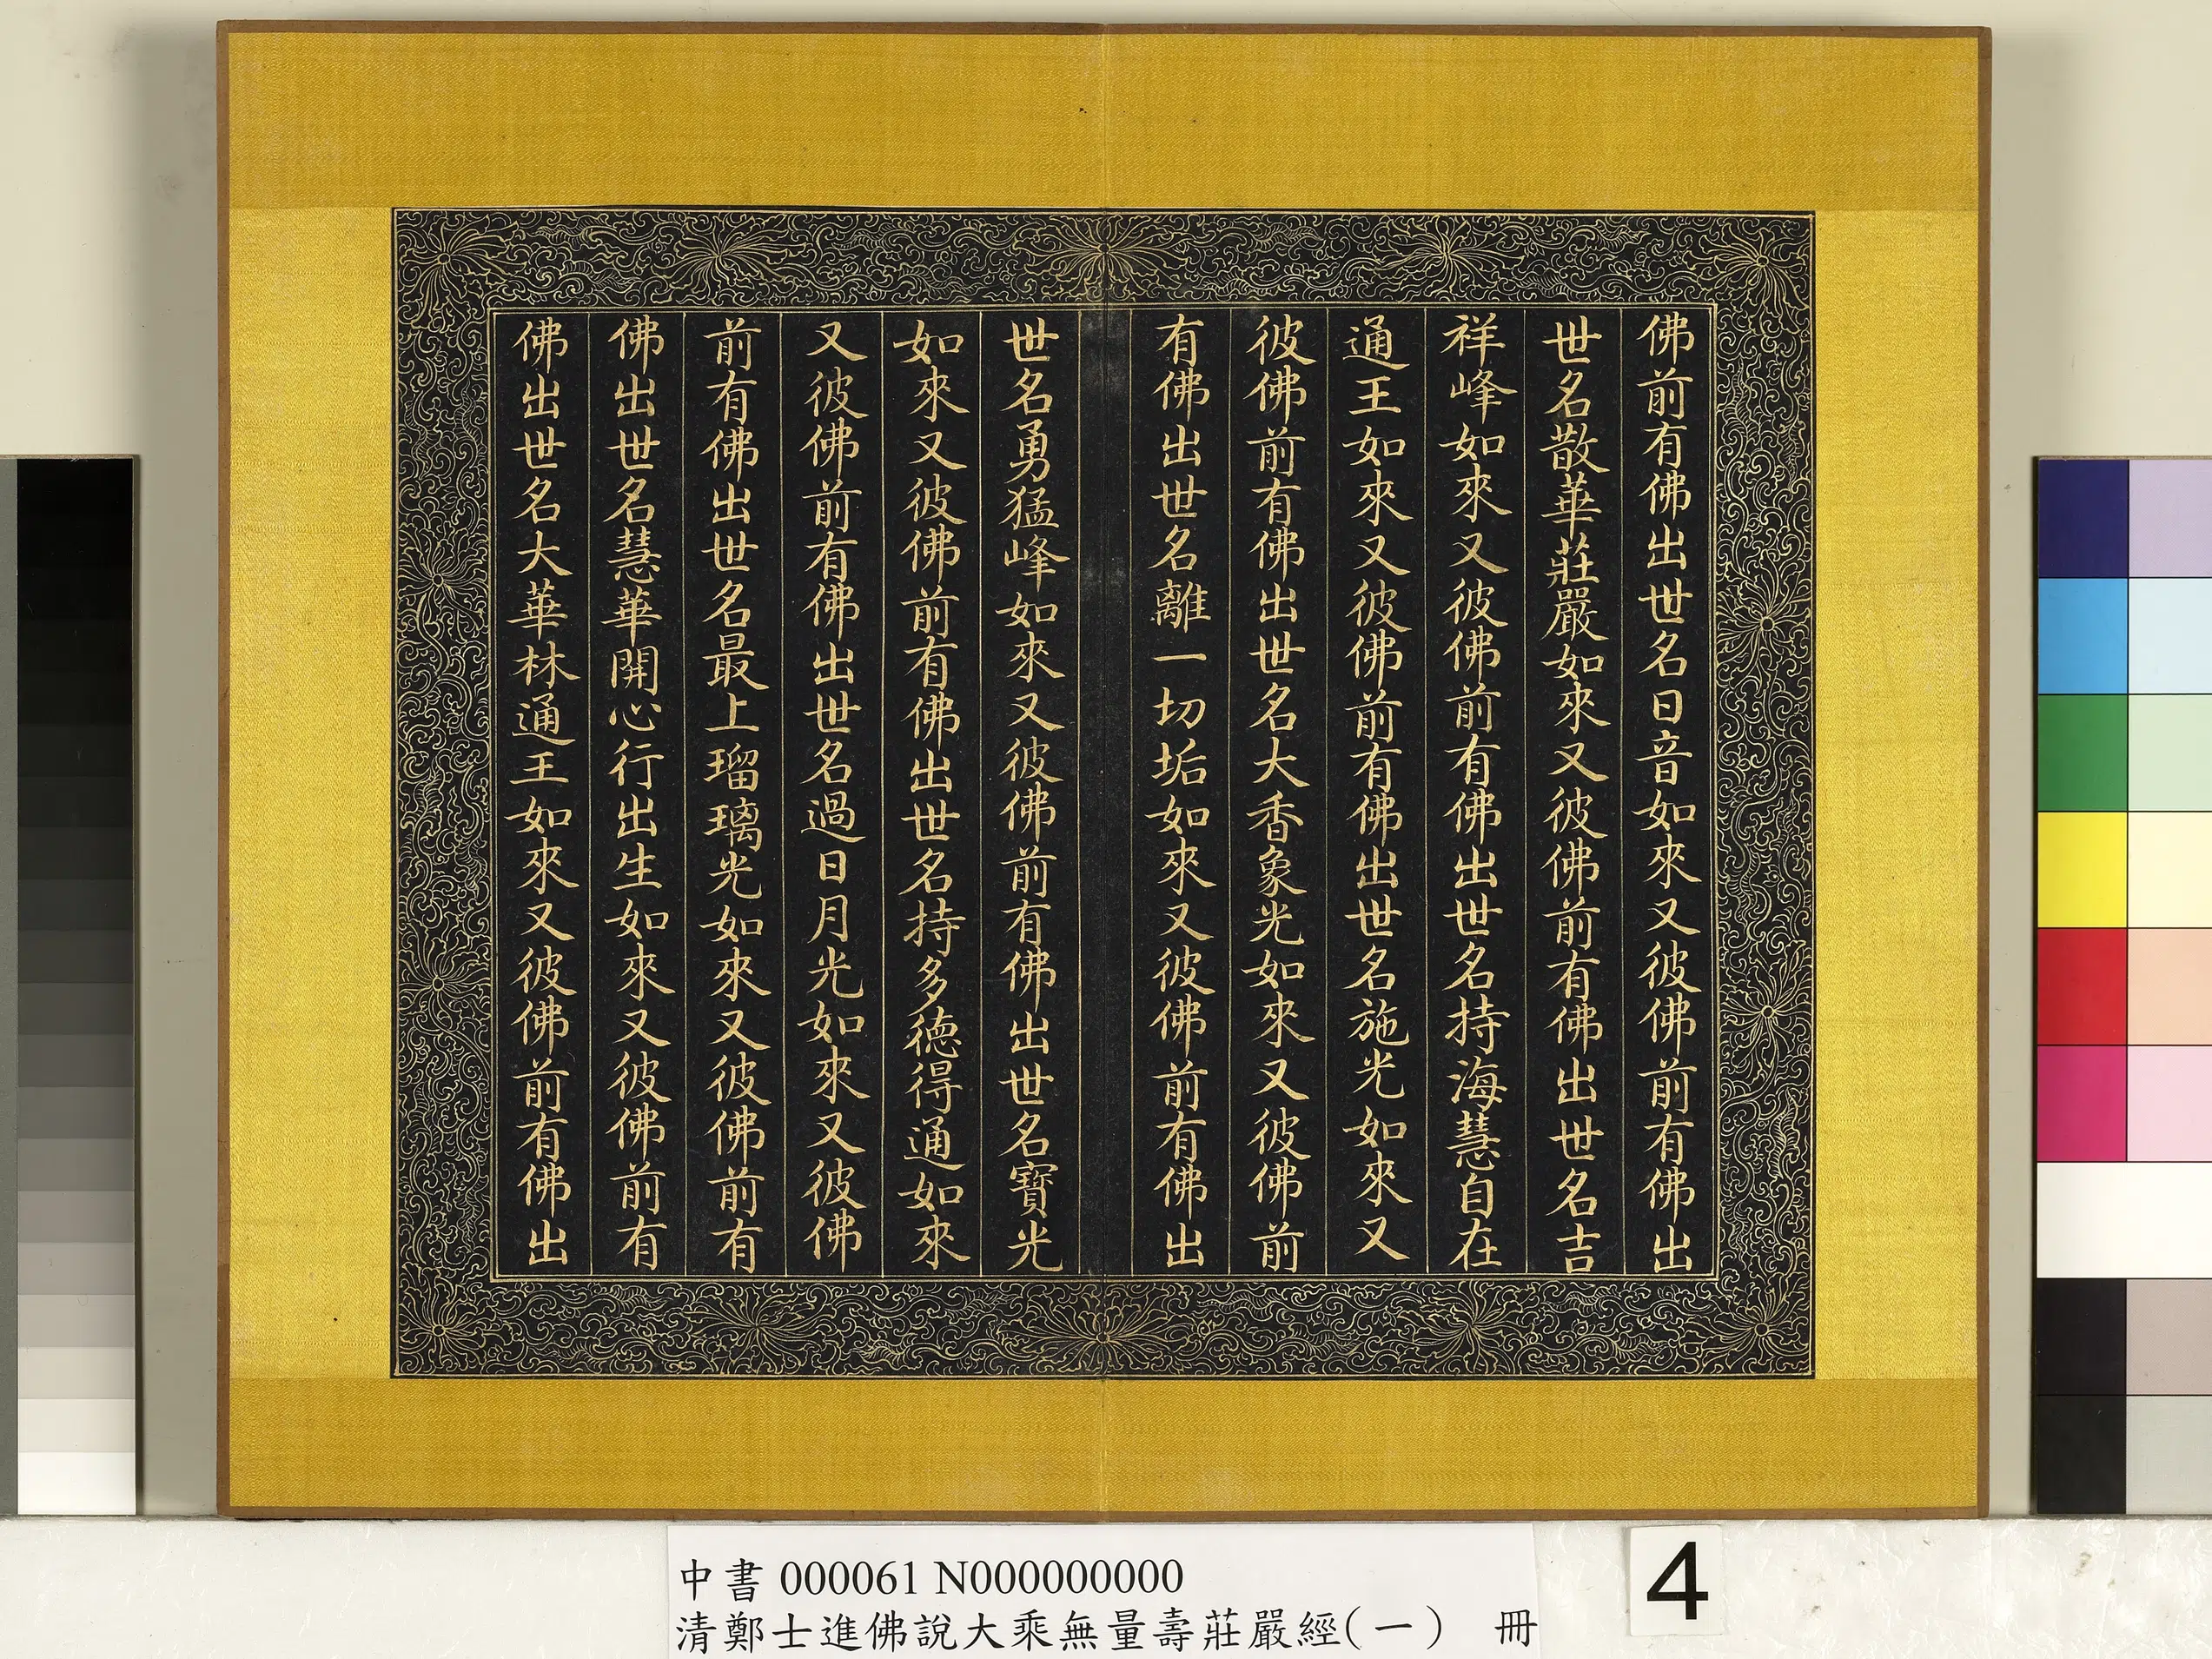 佛前有佛出世名日音如來又彼佛前有佛出
世名散華莊嚴如來又彼佛前有佛出世名吉
祥峰如來又彼佛前有佛出世名持海慧自在
通王如來又彼佛前有佛出世名施光如來又
彼佛前有佛出世名大香象光如來又彼佛前
有佛出世名離一切垢如來又彼佛前有佛出
世名勇猛峰如來又彼佛前有佛出世名寶光
如來又彼佛前有佛出世名持多德得通如來
又彼佛前有佛出世名過日月光如來又彼佛
前有佛出世名最上瑠璃光如來又彼佛前有
佛出世名慧華開心行出生如來又彼佛前有
佛出世名大華林通王如來又彼佛前有佛出
中書 000061 N000000000
清鄭士進佛說大乘無量壽莊嚴經(一) 冊
4